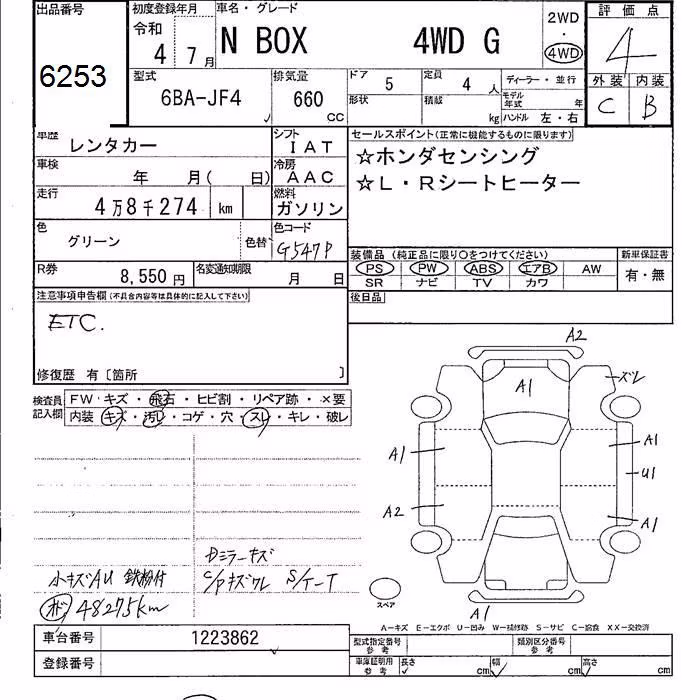 出品番号
6253
初度登録年月
令和
4 7月
車名・グレード
N BOX 4WD G
2WD
・
4WD
評価点
4
外装 内装
C B
型式
6BA-JF4
排気量
660
CC
ドア 5
定員 4 人
ディーラー・並行
形状
積載 kg
モデル年式 年
ハンドル 左・右
車歴 レンタカー
シフト IAT
車検 年 月( 日)
冷房 AAC
走行 4万8千274 km
燃料 ガソリン
色 グリーン
色替
色コード G547P
R券 8,550円
名変通知期限 月 日
セールスポイント(正常に機能するものに限ります)
☆ホンダセンシング
☆L・Rシートヒーター
装備品 (純正品に限り○をつけてください)
新車保証書
PS PW ABS エアB AW
有・無
SR ナビ TV カワ
後日品
注意事項申告欄(不具合内容等は具体的に記入して下さい)
ETC.
修復歴 有〔箇所 〕
検査員記入欄
FW・キズ・飛石・ヒビ割・リペア跡・×要
内装・キズ・汚レ・コゲ・穴・スレ・キレ・破レ
A2
A1
ズレ
A1
A1
U1
A2
A1
A1
スペア
Dミラーキズ
小キズAU 鉄粉付 C/Pキズワレ S/T-T
48275km
A-キズ E-エクボ U-凹み W-補修跡 S-サビ C-腐食 XX-交換済
車台番号 1223862
登録番号
型式指定番号
参考
類別区分番号
参考
車庫証明用
参考
長さ cm
幅 cm
高さ cm